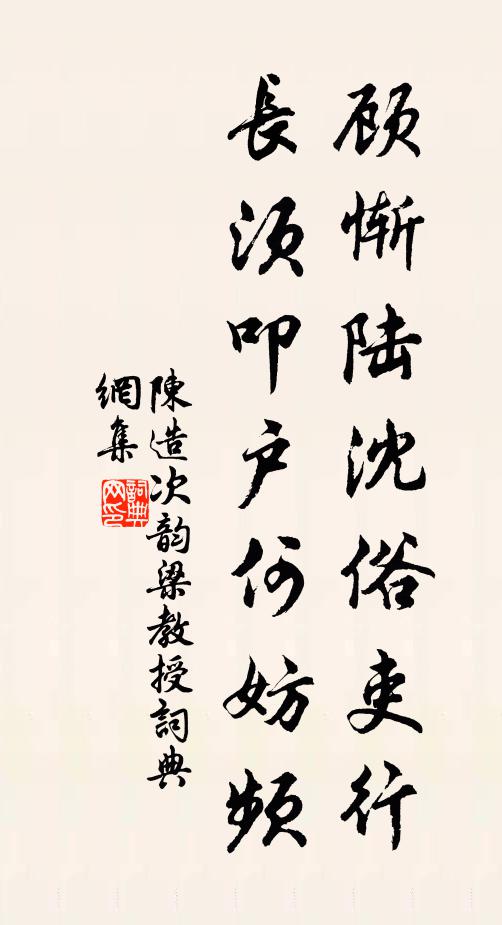 顾惭陆沈俗吏行
長须叩户何妨频
陳造次韵梁教授詞典
網集
詞典網印